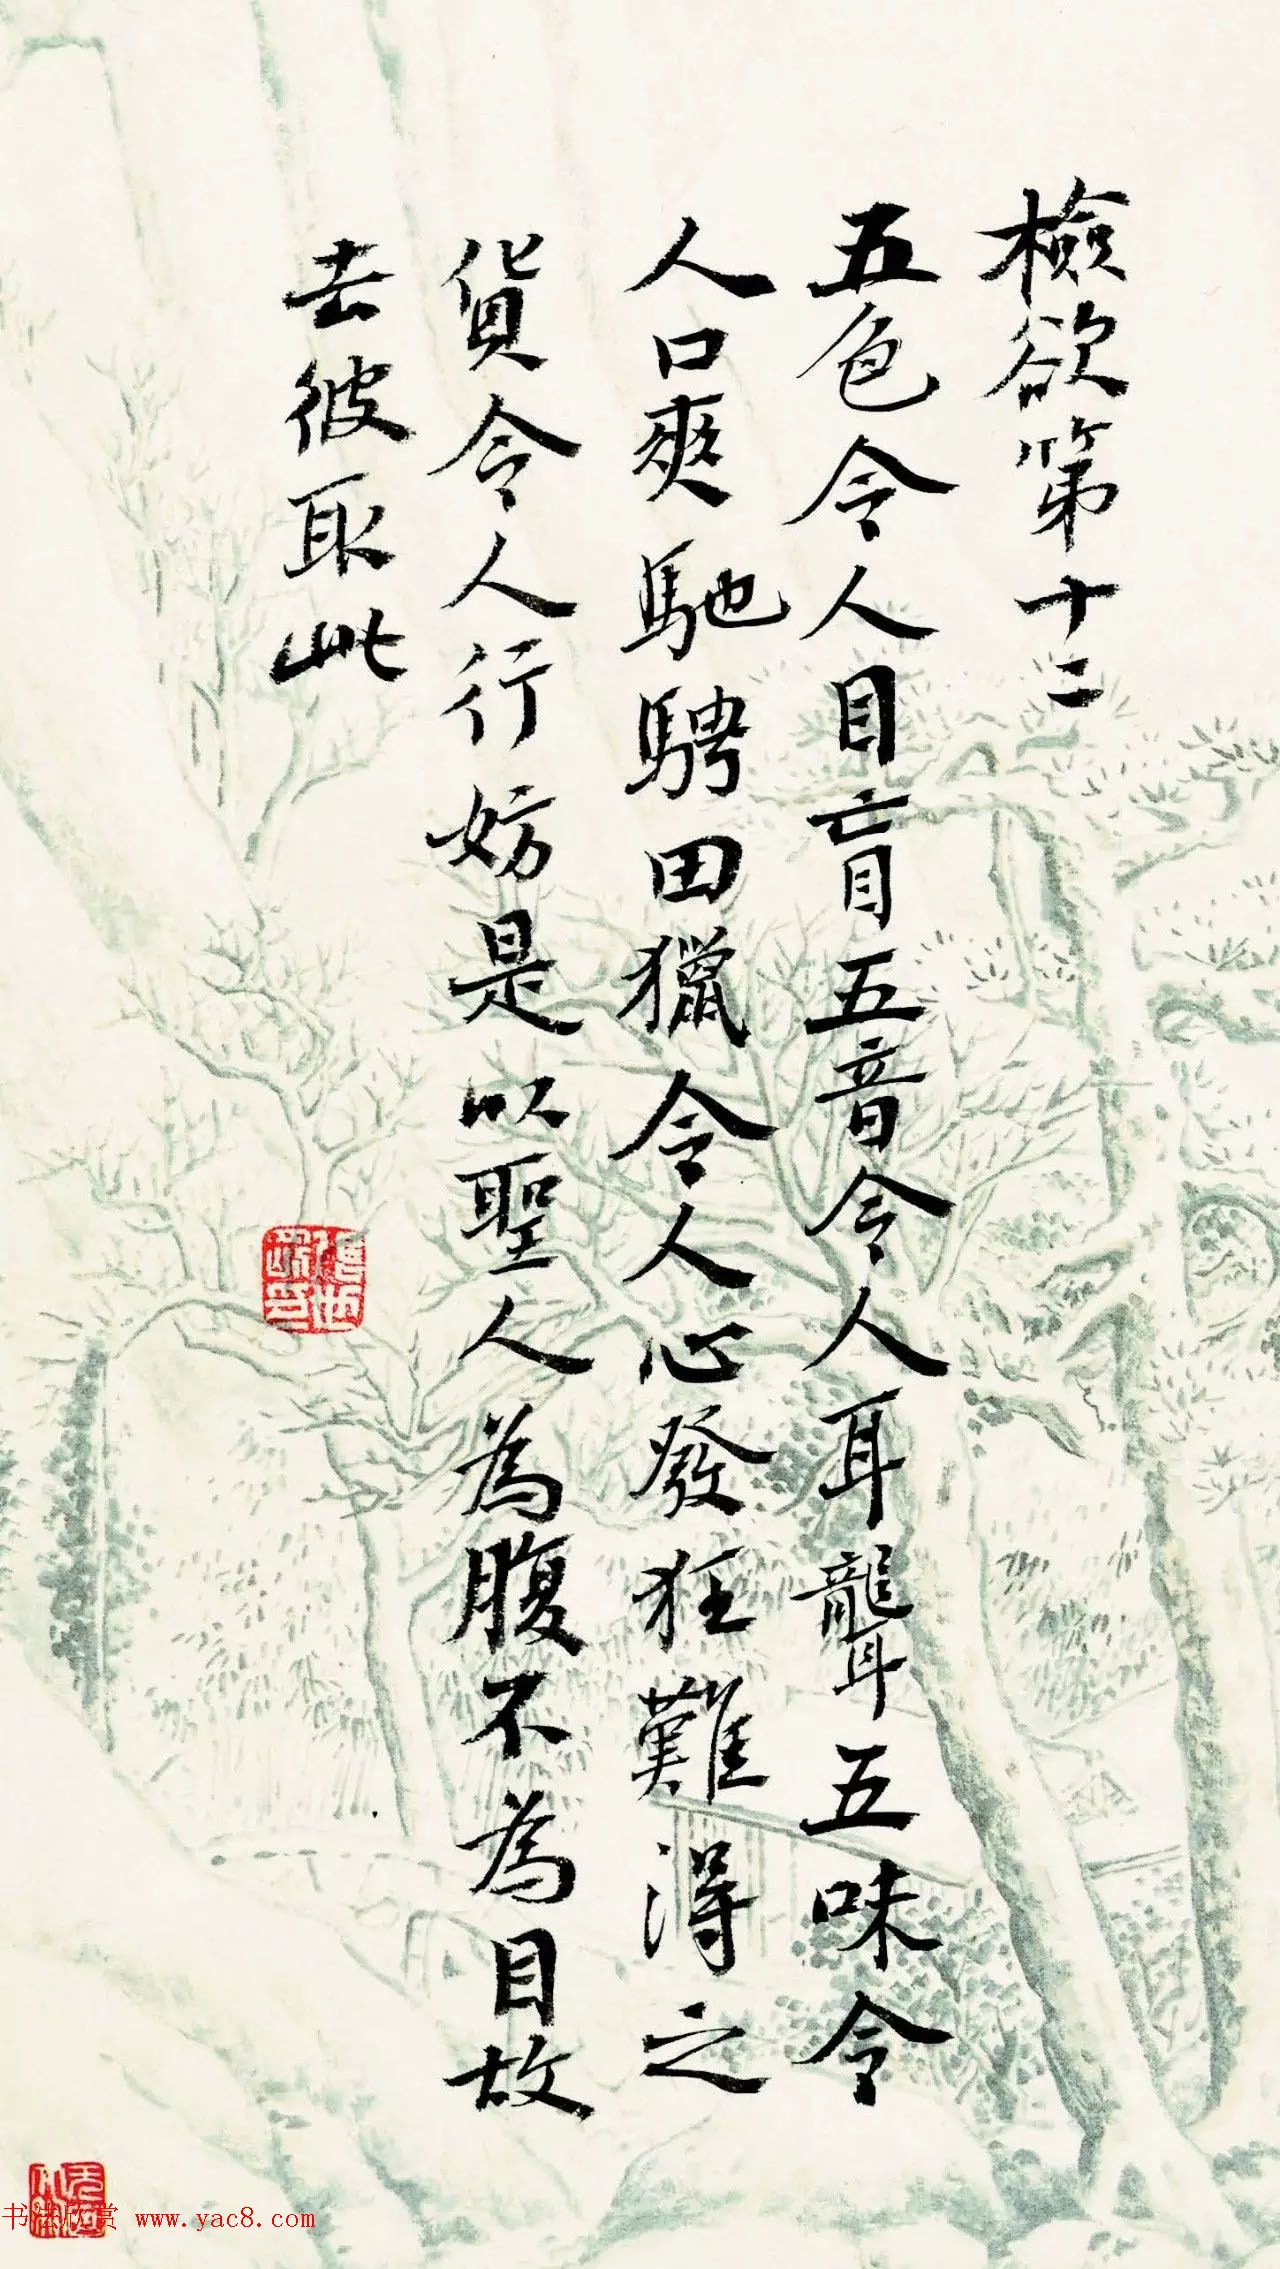 檢欲第十二
五色令人目盲五音令人耳聾五味令
人口爽馳騁田獵令人心發狂難得之
貨令人行妨是以聖人為腹不為目故
去彼取此
书法欣赏 www.yac8.com